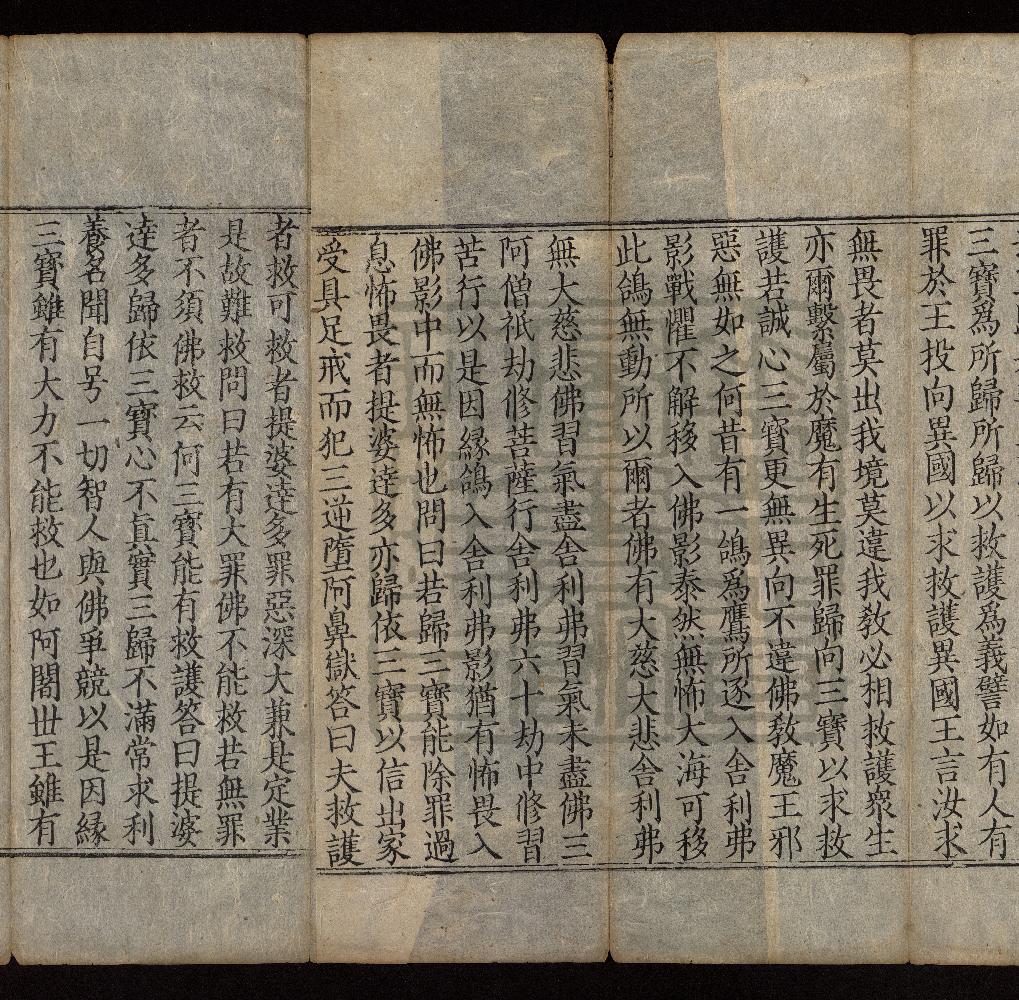 三寶爲所歸所歸以救護爲義譬如有人有
罪於王投向異國以求救護異國王言汝求
無畏者莫出我境莫違我教必相救護衆生
亦爾繫屬於魔有生死罪歸向三寶以求救
護若誠心三寶更無異向不違佛教魔王邪
惡無如之何昔有一鴿爲鷹所逐入舍利弗
影戰懼不解移入佛影泰然無怖大海可移
此鴿無動所以爾者佛有大慈大悲舍利弗
無大慈悲佛習氣盡舍利弗習氣未盡佛三
阿僧祇劫修菩薩行舍利弗六十劫中修習
苦行以是因緣鴿入舍利弗影猶有怖畏入
佛影中而無怖也問曰若歸三寶能除罪過
息怖畏者提婆達多亦歸依三寶以信出家
受具足戒而犯三逆墮阿鼻獄答曰夫救護
者救可救者提婆達多罪惡深大兼是定業
是故難救問曰若有大罪佛不能救若無罪
者不須佛救云何三寶能有救護答曰提婆
達多歸依三寶心不真實三歸不滿常求利
養名聞自号一切智人與佛爭競以是因緣
三寶雖有大力不能救也如阿闍世王雖有